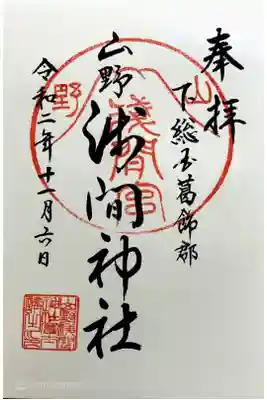 奉拝
下総国葛飾郡
山野
浅間神社
令和二年十一月六日
山野
浅間宮